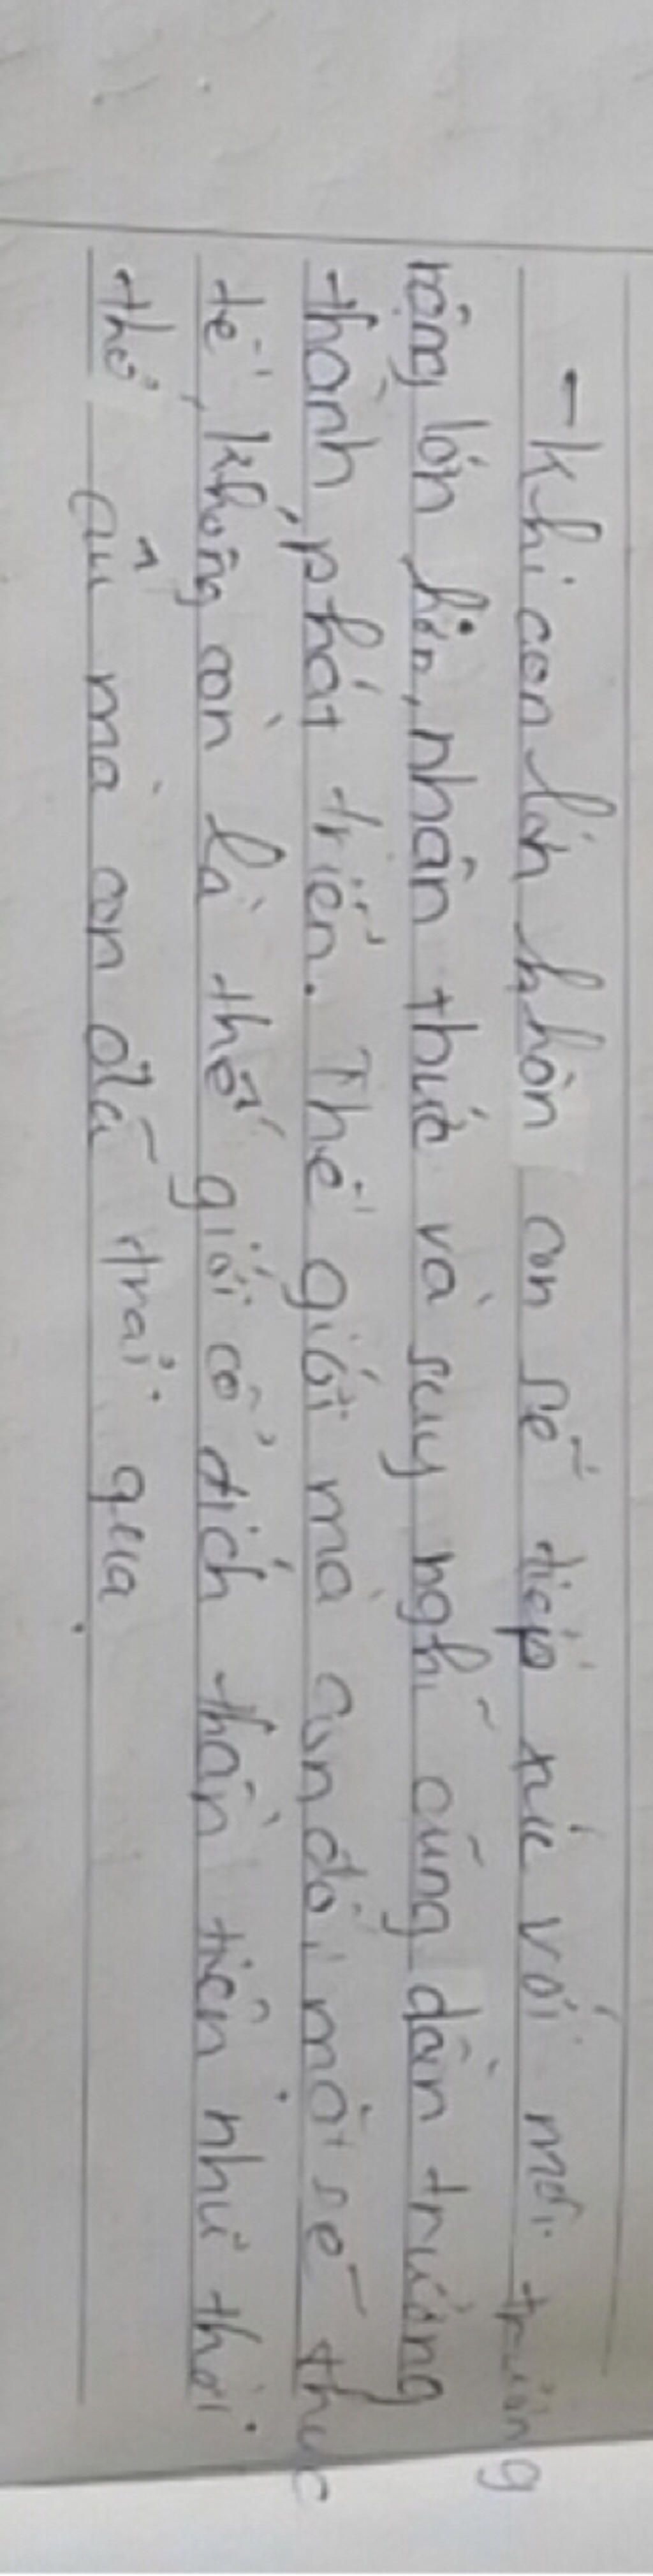 - Khi con lớn khôn con sẽ tiếp xúc với môi trường
rộng lớn hơn, nhân thức và suy nghĩ cũng dần trưởng
thành, phát triển. Thế giới mà con đối mặt sẽ thực
tế, không còn là thế giới cổ tích thần tiên như thời
thơ ấu mà con đã trải qua.